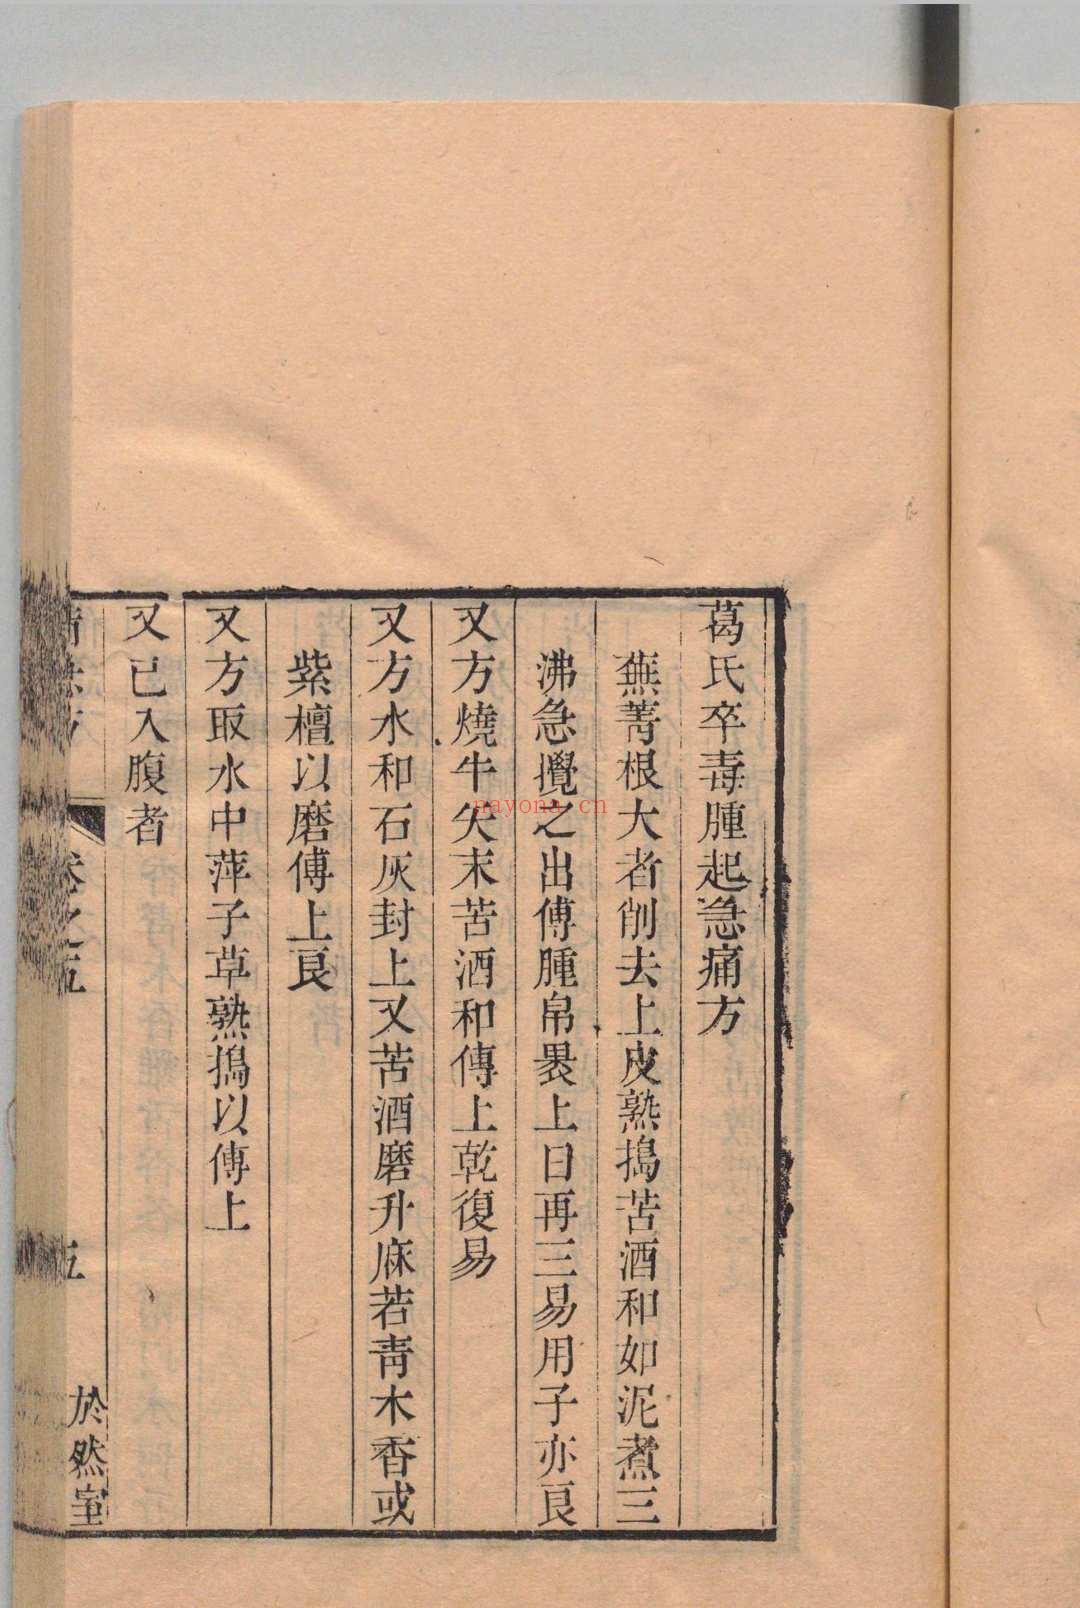 葛氏卒毒腫起急痛方
蕪菁根大者削去上皮熟搗苦酒和如泥煮三
沸急攪之出傅腫帛裹上日再三易用子亦良
又方燒牛矢末苦酒和傅上乾復易
又方水和石灰封上又苦酒磨升麻若青木香或
紫檀以磨傅上良
又方取水中萍子草熟搗以傅上
又已入腹者
卷之五
五
於然室
nayona.cn